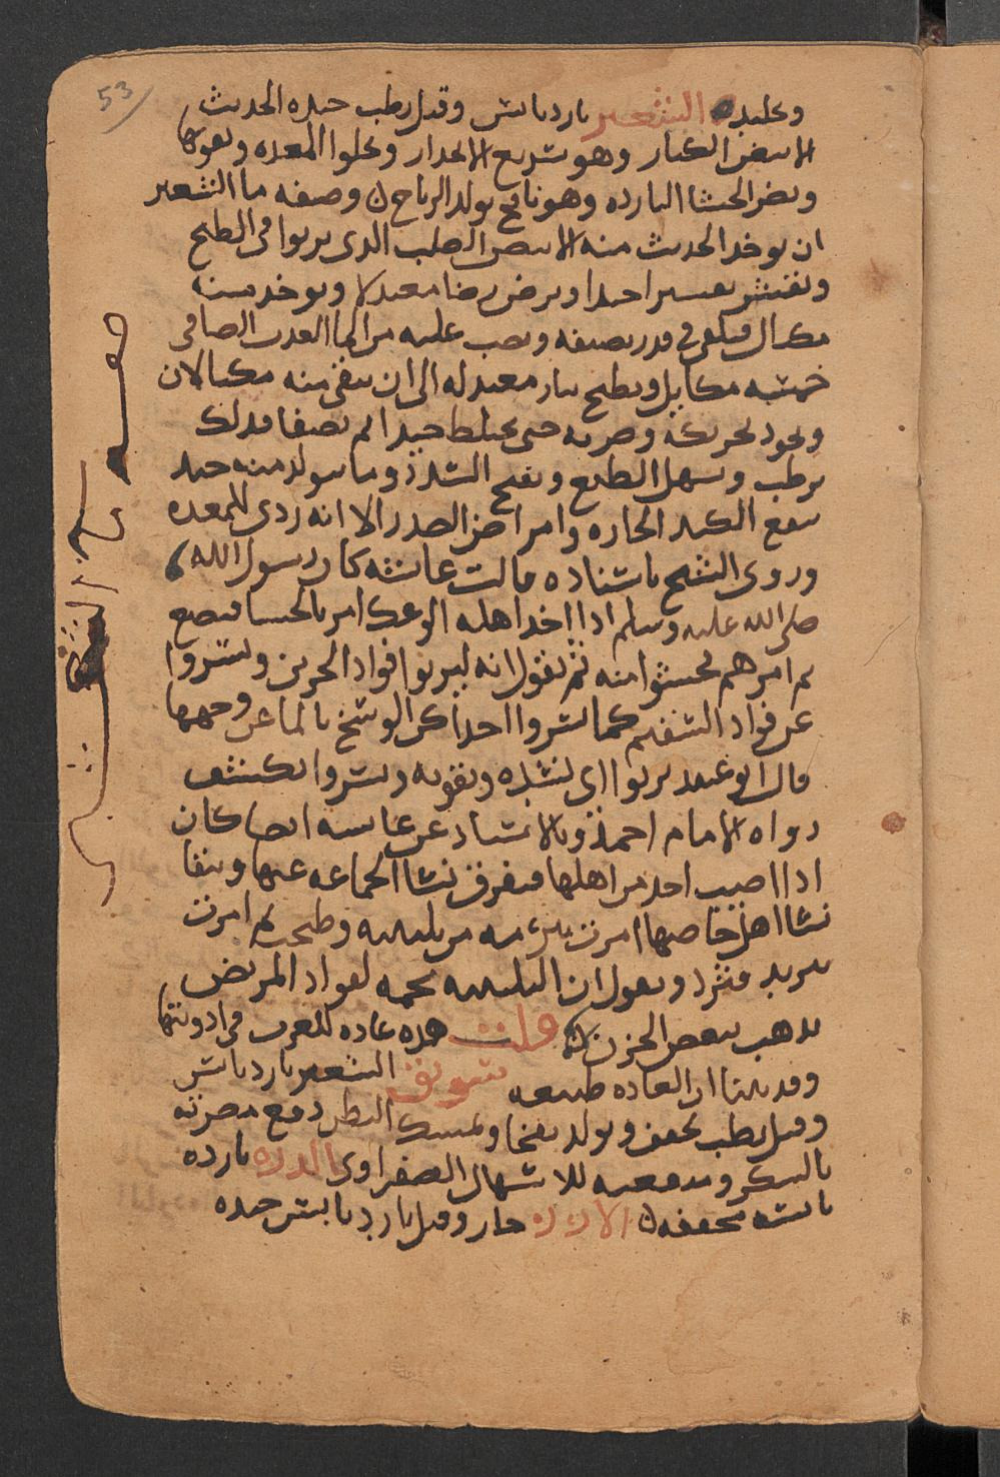 53
وعليه الشعير بارد يابس وقيل رطب جيده الحديث
الابيض الكبار وهو سريع الانحدار ويجلوا المعده ويقويها
ويضر الحشا البارده وهو نافخ يولد الرياح وصفه ما الشعير
ان يوخد الحديث منه الابيض الصلب الدى يربوا فى الطبخ
ويقشر تقشيرا جيدا ويرض رضا معتدلا ويوخد منه
مكيال فيلقى فى قدر نضيفه ويصب عليه من الما العدب الصافى
خمسه مكاييل ويطبخ بنار معتدله الى ان يبقى منه مكيالان
ويجود تحريكه وضربه حتى يختلط جيدا ثم يصفا فدلك
يرطب ويسهل الطبع ويفتح السدد وما يتولد منه جيد
ينفع الكبد الحاره وامراض الصدر الا انه ردى للمعده
وروى الشيخ باسناده قالت عائشه كان رسول الله
صلى الله عليه وسلم اذا اخد اهله الوعك امر بالحسا فيصنع
ثم امرهم فحسوا منه ثم يقول انه ليربوا فواد الحزين ويسروا
عن فواد السقيم كما تسروا احداكن الوسخ بالما عن وجهها
قال ابو عبيد يربوا اى يشده ويقويه ويسروا يكشف
رواه الامام احمد وبالاسناد عن عايشه انها كان
اذا اصيب احد من اهلها فتفرق نسا الجماعه عنها ويبقا
نسا اهل خاصتها امرت ببرمه من تلبينه وطبخت ثم امرت
بثريد فثرد وتقول ان التلبينه مجمه لفواد المريض
يدهب ببعض الحزن قلت هده عاده للعرب فى ادويتها
وقد بينا ان العاده طبيعه سويق الشعير بارد يابس
وقيل رطب يجفف ويولد نفخا ويمسك البطن دفع مضرته
بالسكر ومنفعته للاسهال الصفراوى الدره بارده
يابسه مجففه الارز حار وقيل بارد يابس جيده